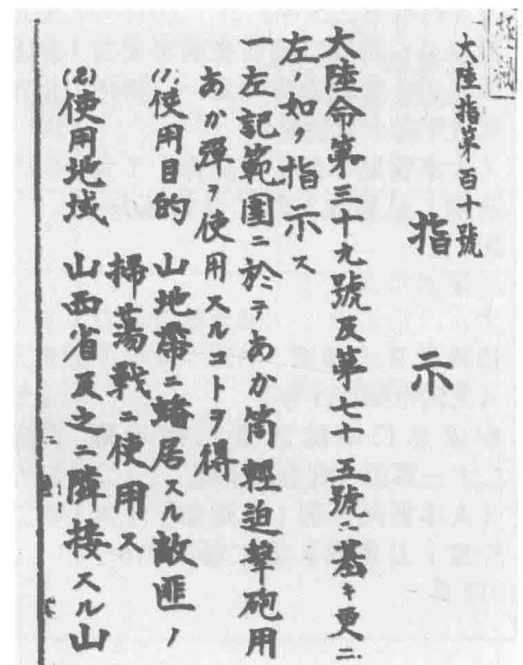 大陸指第百十號
指示
大陸命第三十九號及第七十五號ニ基キ更ニ
左ノ如ク指示ス
一左記範圍ニ於テあか筒輕迫擊砲用
あか彈ヲ使用スルコトヲ得
(1)使用目的 山地帶ニ蟠居スル敵匪ノ
掃蕩戰ニ使用ス
(2)使用地域 山西省及之ニ隣接スル山